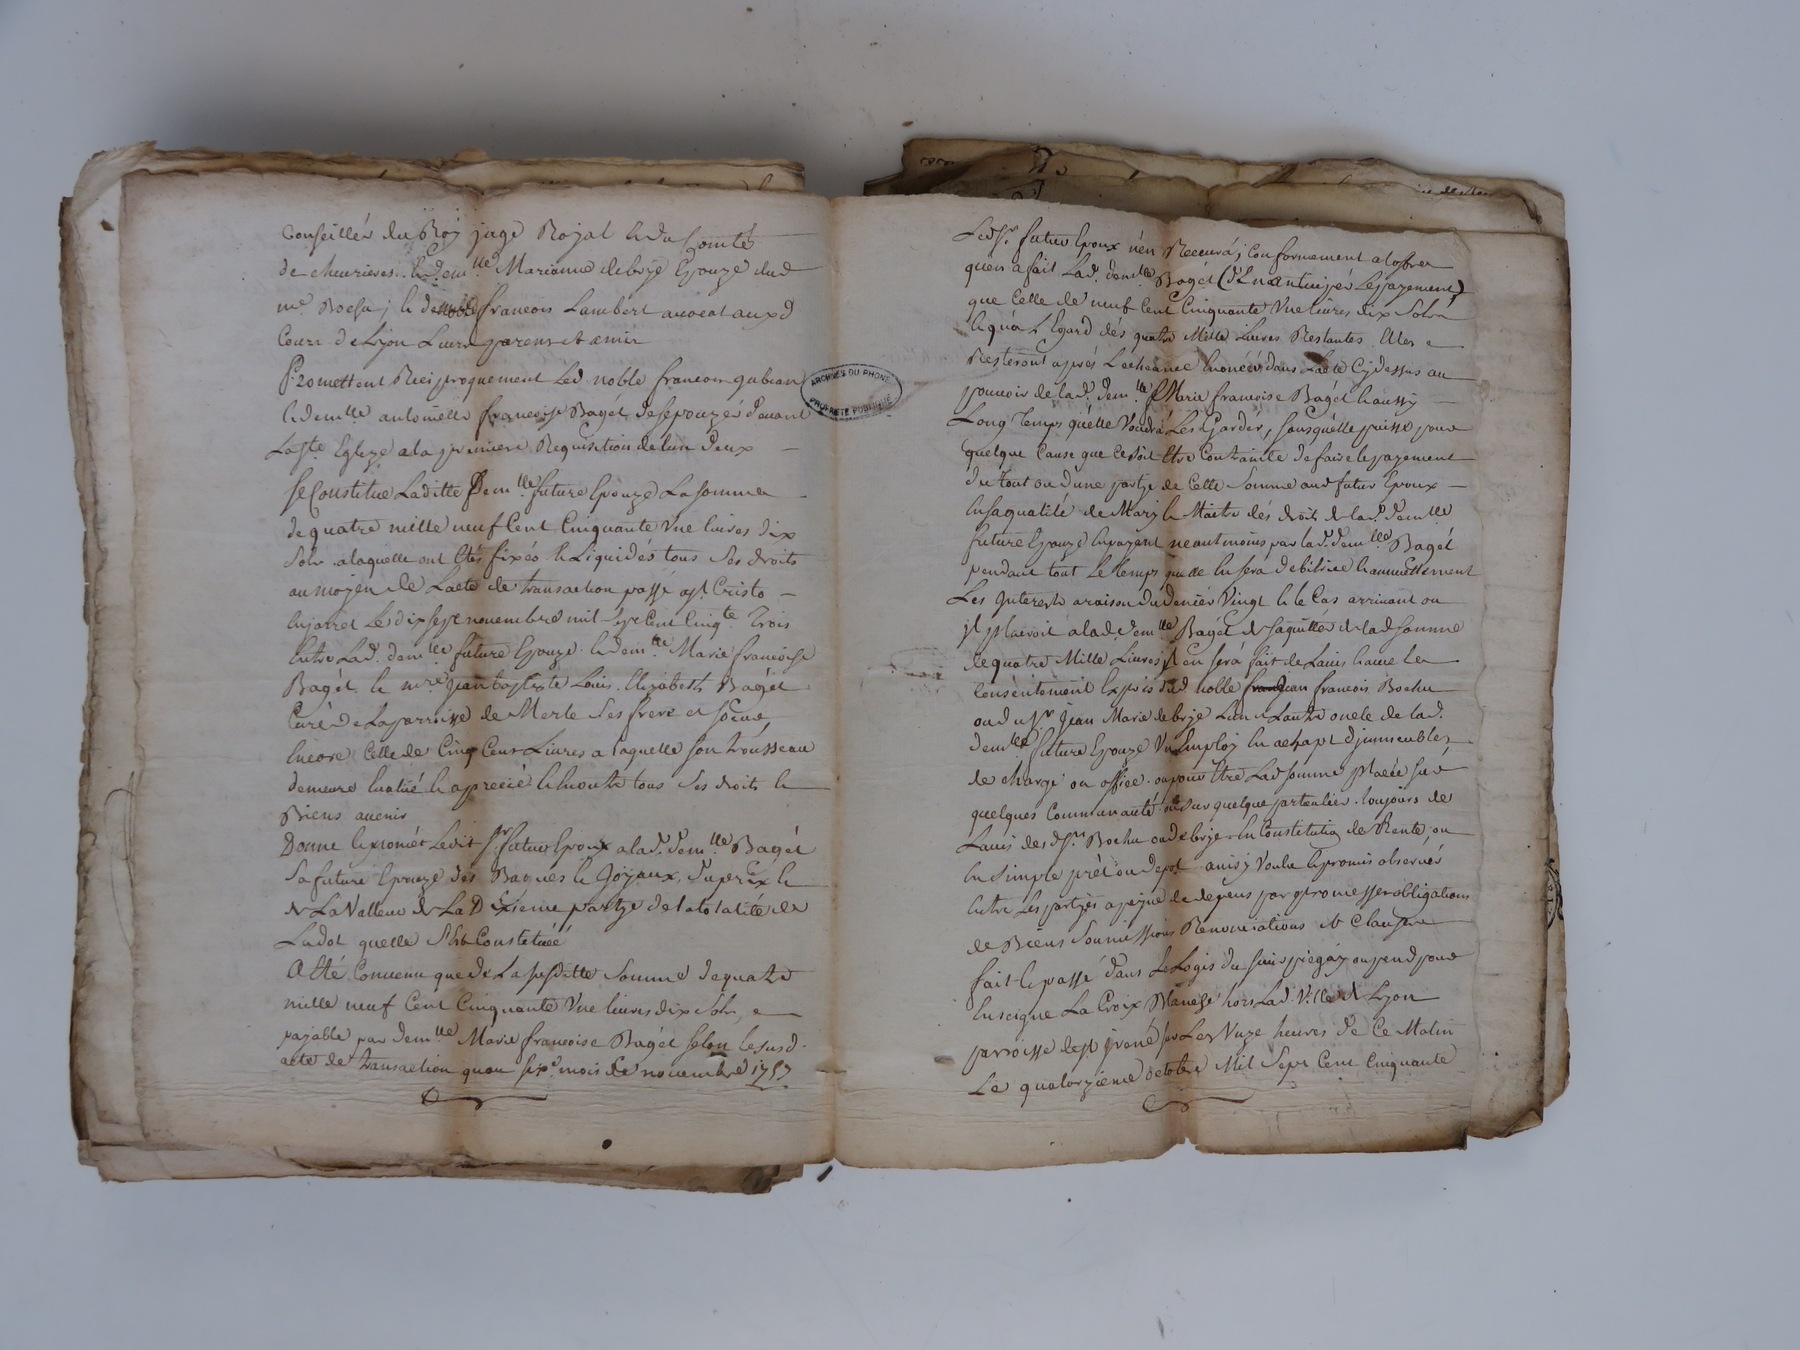 Conseiller du Roy juge Royal de du Comté
de cheurieres. & dem.lle Marianne debrye Epouze dud
m.e Bochu; & de noble francois Lambert auocat auxd
Cours de Lyon Leurs parens et amis
Promettent Reciproquement Led. noble francois gubian
& demlle antoinette francoise Bagét de sepouzér d'euant
La Ste Eglize a la premiere Requisition de lun d'eux
se Constitue Laditte Demlle future Epouze La somme
de quatre mille neuf Cent Cinquante Vne liures dix
Sols a laquelle ont étés fixés & Liquidés tous ses droits
au moyen de L'acte de transaction passé
en jarret Le dix sept nouembre mil sept Cent Cinqte Trois
Entre Lad. demlle future Epouze & demlle Marie francoise
Bagét & mre jean baptiste Louis Elizabeth Bagét
Curé de La parroisse de Merle ses frere et sœur,
Encore Celle de Cinq Cent Liures a laquelle son trousseau
demeure Eualué & aprecié & en outre tous ses droits &
Biens auenir
Donne & promét Ledit Sr futur Epoux a lad. demlle Bagét
sa future Epouze des Bagues & Joyaux, du prix &
de La Valleur de La Dixieme partye de la totalité de
La dot quelle s'est Constituée
A été Conuenu que de La susditte somme de quatre
mille neuf Cent Cinquante Vne liures dix sols,
payable par demlle Marie francoise Bagét selon le susd.
acte de transaction quau six.e mois de nouembre 1757
ARCHIVES DU RHONE
PROPRIETE PUBLIQUE
Led Sr. futur Epoux n'en Receurá; Conformement a loffre
quen a fait Lad. demlle Bagét (d'En antiçipér Le payement)
que Celle de neuf Cent Cinquante Vne liures dix sols
& qu'a L'Egard dés quatre Mille Liures Restantes Elles
Resteront aprés L'echeance Enoncée dans L'acte Cy dessus au
pouuoir de lad. demlle Marie francoise Bagét & aussy
Long Temps qu'elle Voudrá Les Garder, sans qu'elle puisse pour
quelque Cause que Ce soit Etre Contrainte de faire le payement
du tout ou d'une partye de Cette somme aud futur Epoux
En sa qualité de Mary & Maitre dés droits de lad. demlle
future Epouze En payant neantmoins par lad. demlle Bagét
pendant tout Le temps quelle En sera debitrice & annuellement
Les Interests a raison du denier Vingt & le Cas arriuant ou
jl plairoit a lad. demlle Bagét de s'aquitter de lad somme
de quatre Mille Liures jl en sera fait de L'auis & auec Le
Consentement Exprés dud noble jean francois Bochu
ou du Sr jean Marie debrye L'un & L'autre oncle de lad.
demlle future Epouze Vn Employ En achapt d'jmmeubles,
de charge ou office. ou pour Etre Lad somme placée sur
quelques Communauté ou sur quelque particulier. toujours de
L'auis desd Srs Bochu ou debrye En Constitution de Rente, ou
En simple prét ou depot ainsy Voulu & promis obseruer
Entre Les partyes a peyne de depens par promesses obligations
de Biens soumissions Renonciations & Clauses
fait & passé dans Le Logis du Sieur piegay ou pend pour
Enseigne La Croix Blanche hors Lad. Ville de Lyon
parroisse de St jrené sur Les Vnze heures de Ce Matin
Le quatorzieme octobre Mil Sept Cent Cinquante